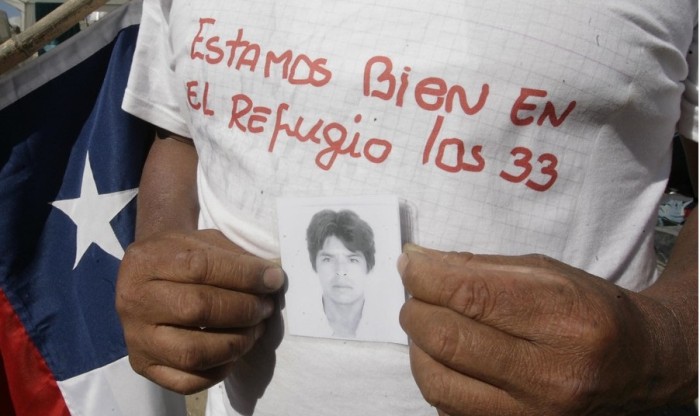 Estamos Bien en
el Refugio los 33